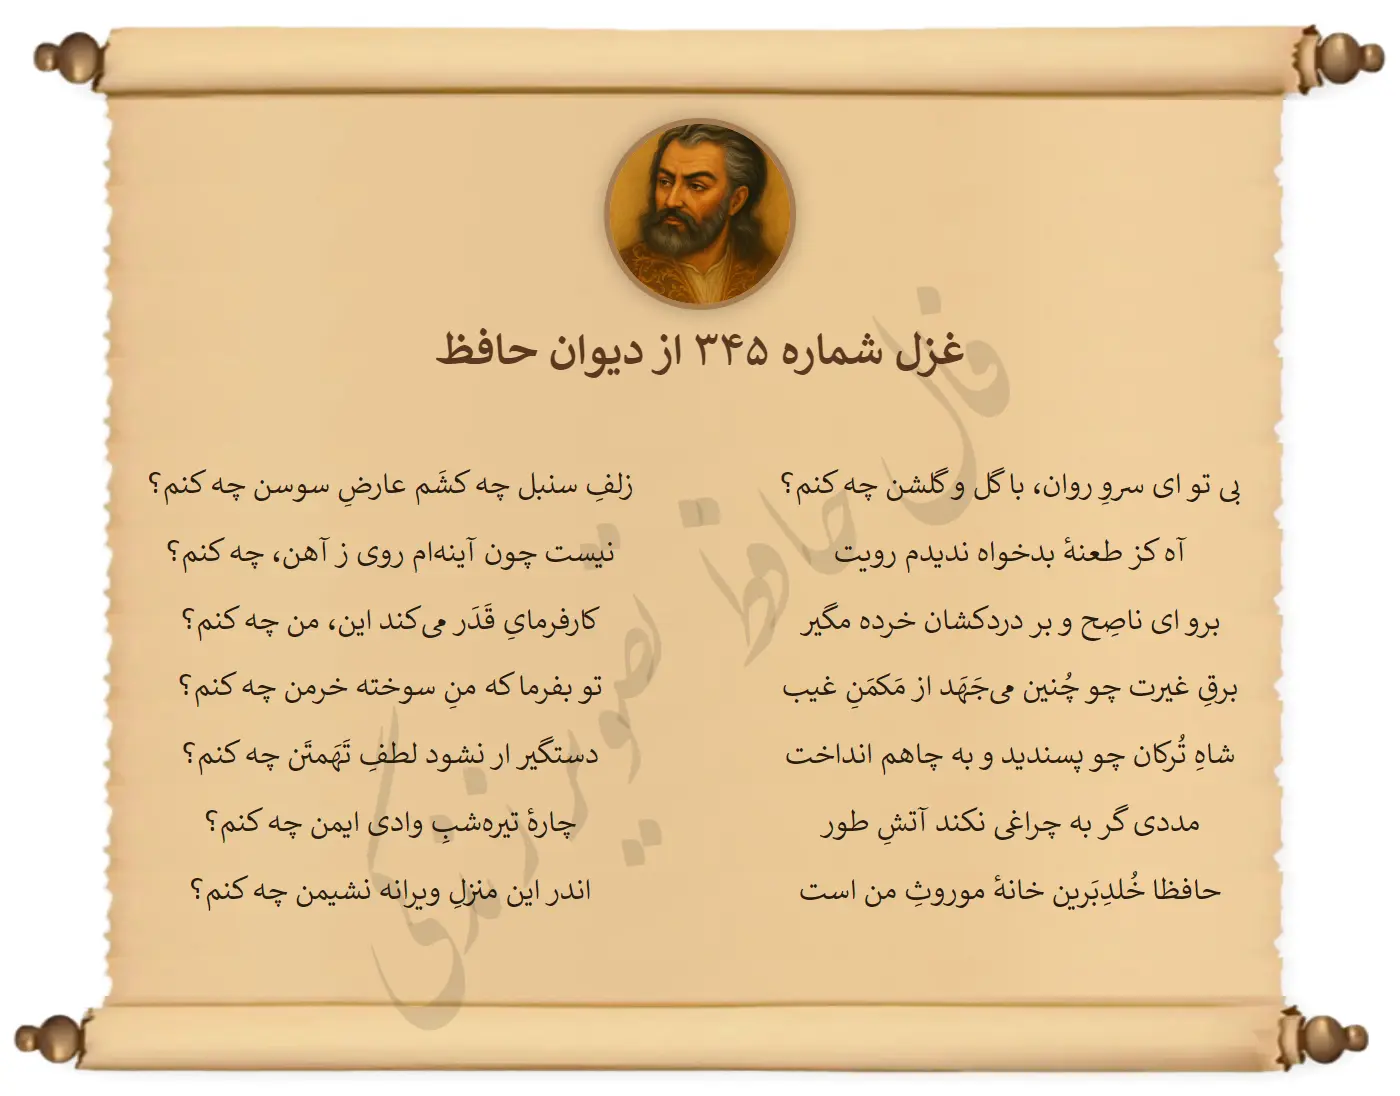 غزل شماره ۳۴۵ از دیوان حافظ
بی تو ای سروِ روان، با گل و گلشن چه کنم؟
زلفِ سنبل چه کشَم عارضِ سوسن چه کنم؟
آه کز طعنهٔ بدخواه ندیدم رویت
نیست چون آینه‌ام روی ز آهن، چه کنم؟
برو ای ناصِح و بر دردکشان خرده مگیر
کارفرمایِ قَدَر می‌کند این، من چه کنم؟
برقِ غیرت چو چُنین می‌جَهَد از مَکمَنِ غیب
تو بفرما که منِ سوخته خرمن چه کنم؟
شاهِ تُرکان چو پسندید و به چاهم انداخت
دستگیر ار نشود لطفِ تَهَمتَن چه کنم؟
مددی گر به چراغی نکند آتشِ طور
چارهٔ تیره‌شبِ وادی ایمن چه کنم؟
حافظا خُلدِبَرین خانهٔ موروثِ من است
اندر این منزلِ ویرانه نشیمن چه کنم؟
فال حافظ تصویر زندگی